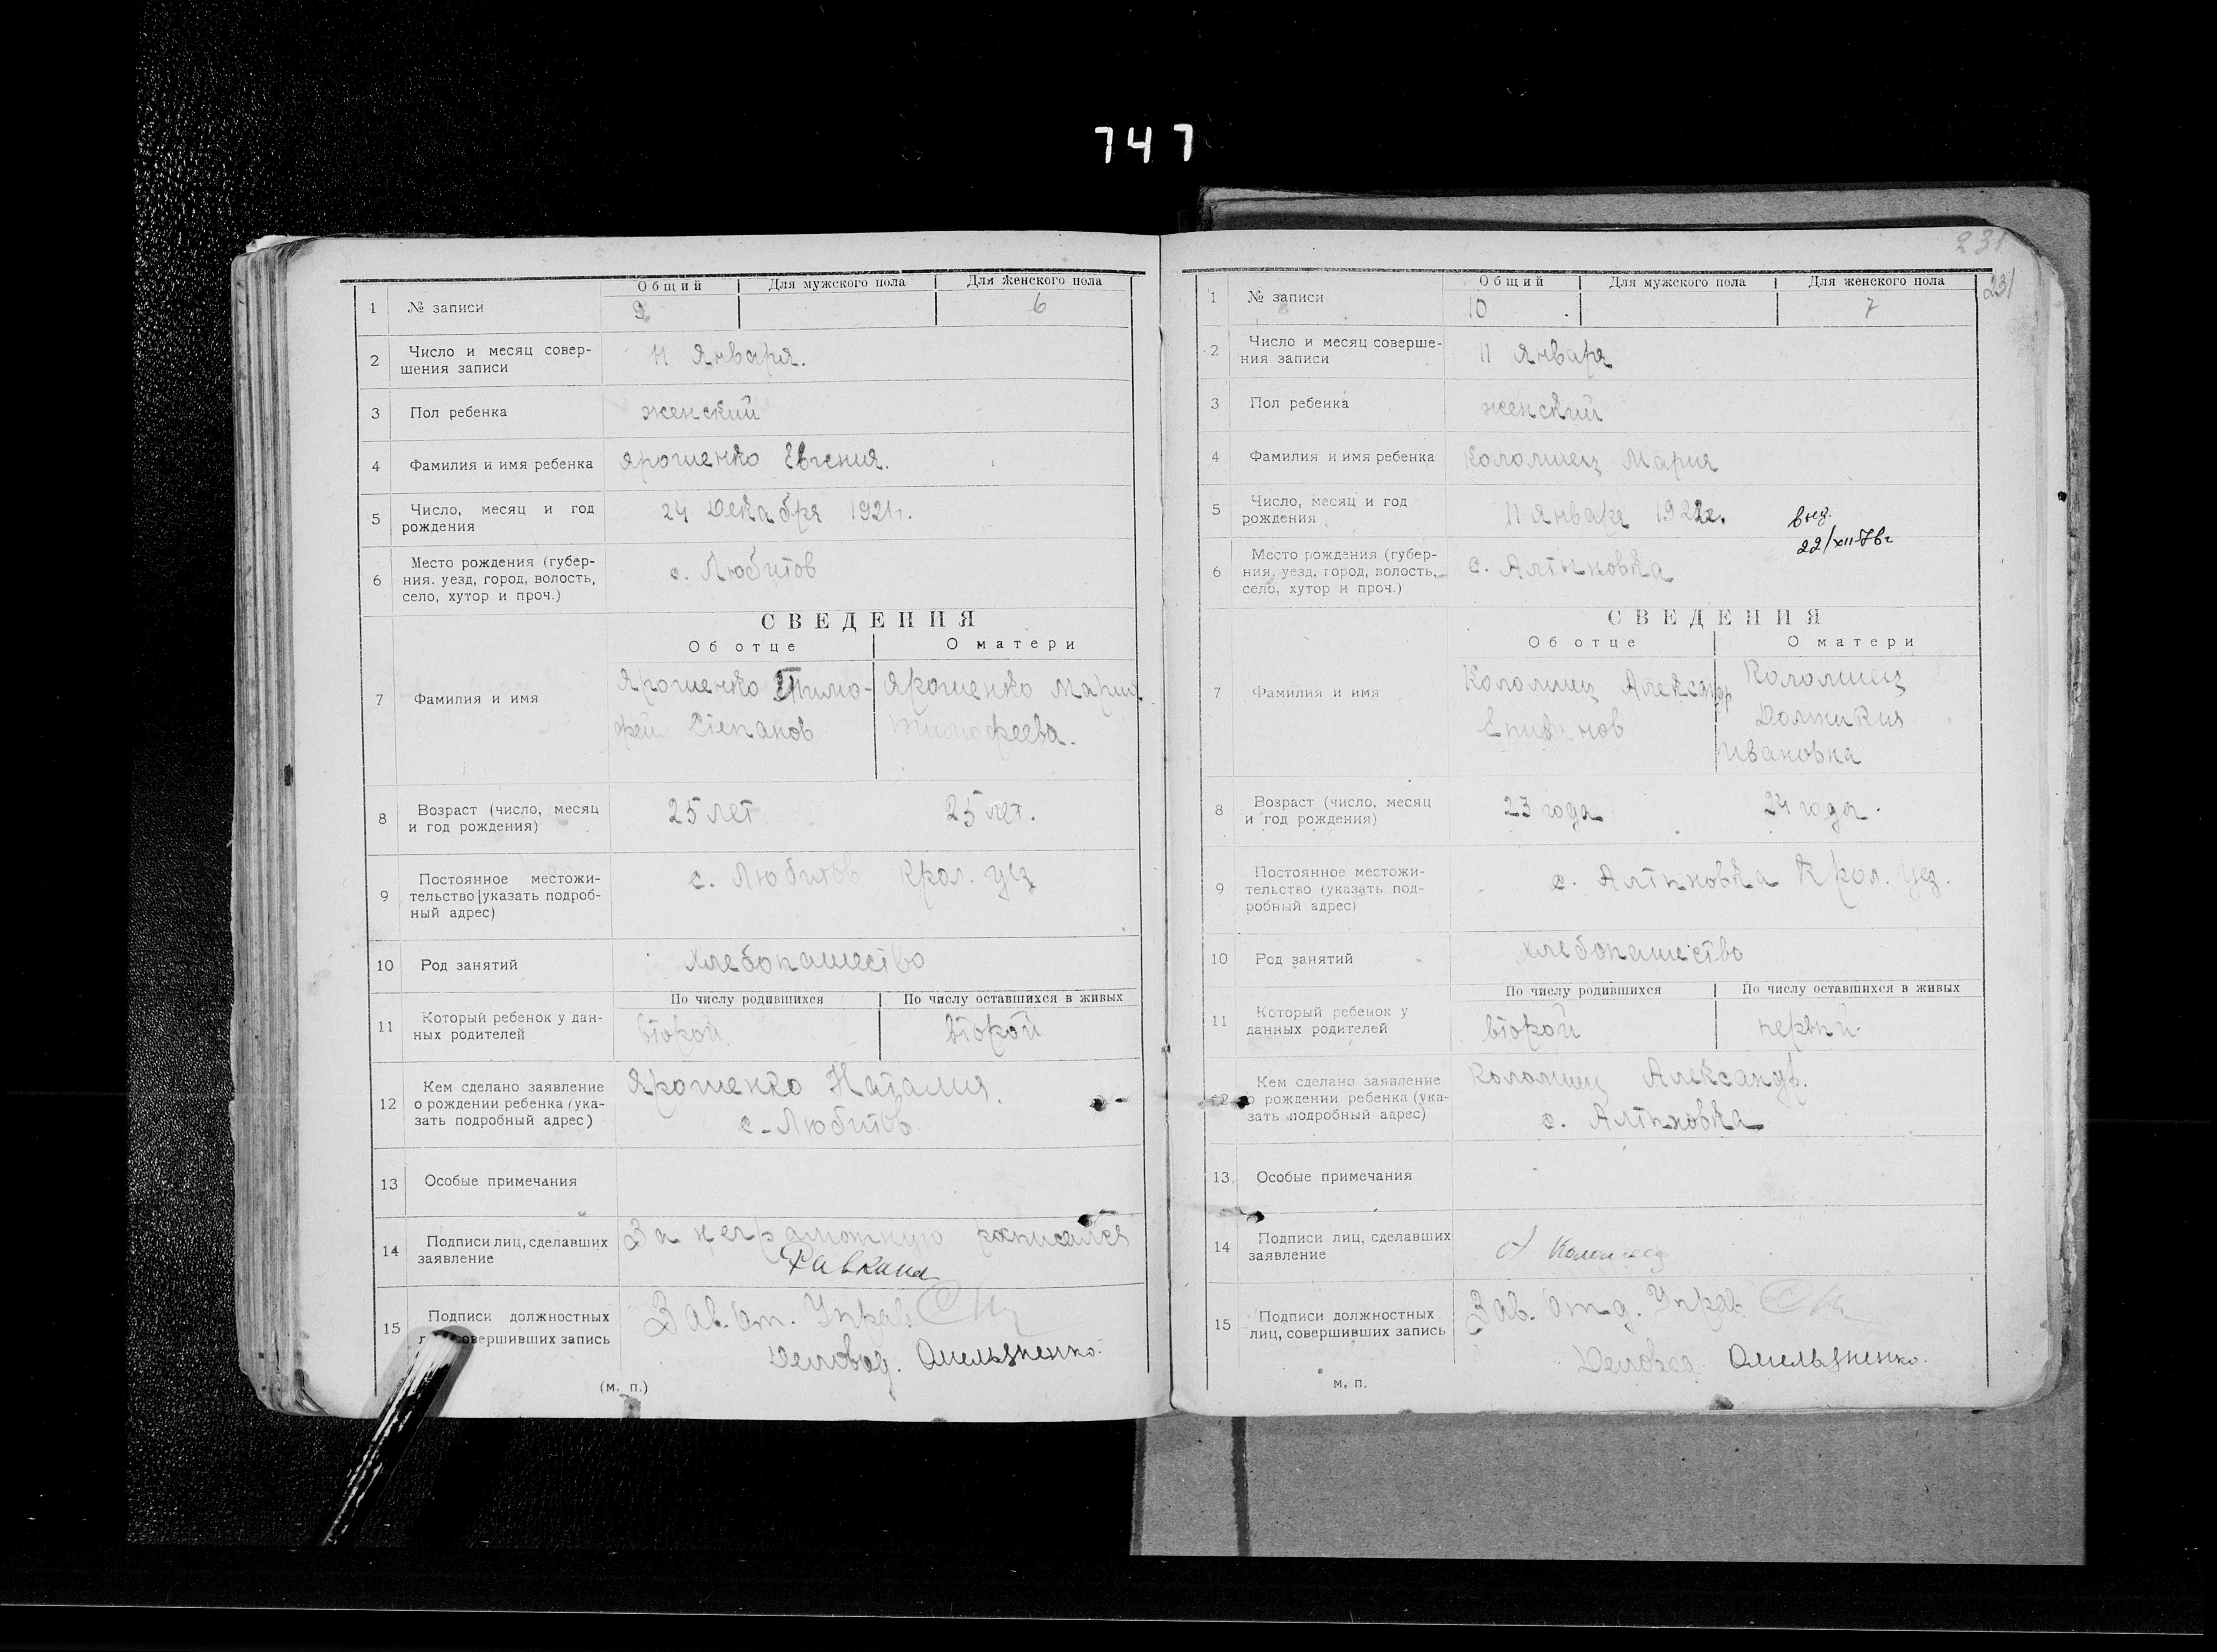 747
Общий Для мужского пола Для женского пола
1 № записи 9 6
2 Число и месяц совер-
шения записи 11 Января.
3 Пол ребенка женский
4 Фамилия и имя ребенка Ярошенко Евгения.
5 Число, месяц и год
рождения 24 Декабря 1921г.
6 Место рождения (губер-
ния. уезд, город, волость,
село, хутор и проч.)
с. Любитов
СВЕДЕНИЯ
Об отце О матери
7 Фамилия и имя
Ярошенко Тимо- Ярошенко Мария
фей Степанов Тимофеева.
8 Возраст (число, месяц
и год рождения) 25 лет 25 лет.
9 Постоянное местожи-
тельство [указать подроб-
ный адрес)
с. Любитов Крол. уез
10 Род занятий хлебопашество
По числу родившихся По числу оставшихся в живых
11 Который ребенок у дан-
ных родителей второй второй
12 Кем сделано заявление
о рождении ребенка (ука-
зать подробный адрес)
Ярошенко Наталия.
с. Любитов
13 Особые примечания
14 Подписи лиц, сделавших
заявление
За неграмотную росписался
15 Подписи должностных
совершивших запись
Зав. От. Управ.
Деловод. Омельяненко.
(м. п.)
231
231
Общий Для мужского пола Для женского пола
1 № записи 10 7
2 Число и месяц соверше-
ния записи 11 Января
3 Пол ребенка женский
4 Фамилия и имя ребенка Коломиец Мария
5 Число, месяц и год
рождения 11 Января 1922г.
22/XII-76г
6 Место рождения (губер-
ния, уезд, город, волость,
село, хутор и проч.)
с. Алтыновка
СВЕДЕНИЯ
Об отце О матери
7 Фамилия и имя
Коломиец Александр Коломиец
Епифанов
Ивановна
8 Возраст (число, месяц
и год рождения) 23 года 24 года.
9 Постоянное местожи-
тельство (указать под-
робный адрес)
с. Алтыновка Крол. уез.
10 Род занятий хлебопашество
По числу родившихся По числу оставшихся в живых
11 Который ребенок у
данных родителей второй первый
12 Кем сделано заявление
о рождении ребенка (ука-
зать подробный адрес)
Коломиец Александр.
с. Алтыновка
13 Особые примечания
14 Подписи лиц, сделавших
заявление
А Коломиец
15 Подписи должностных
лиц, совершивших запись
Зав. Отд. Управ.
Деловод. Омельяненко.
м. п.